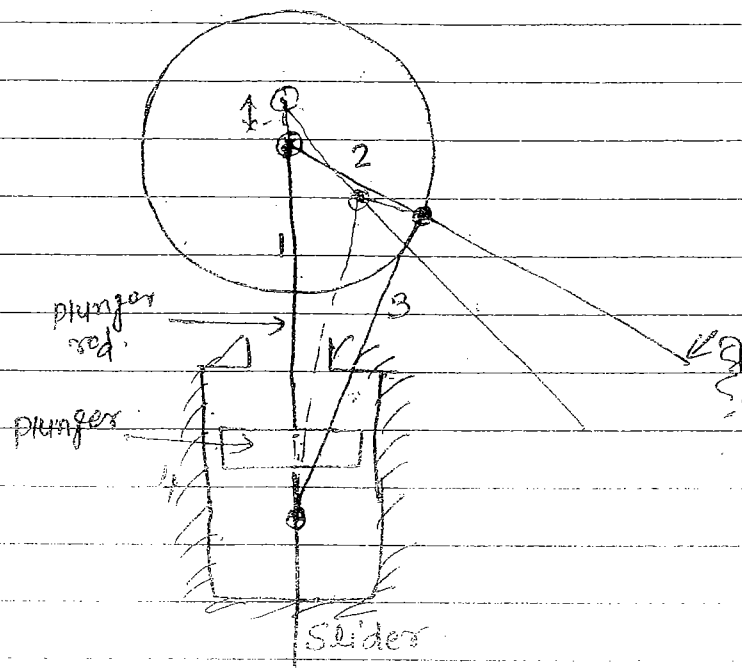 2
1
3
plunger
rod.
plunger
4
Slider